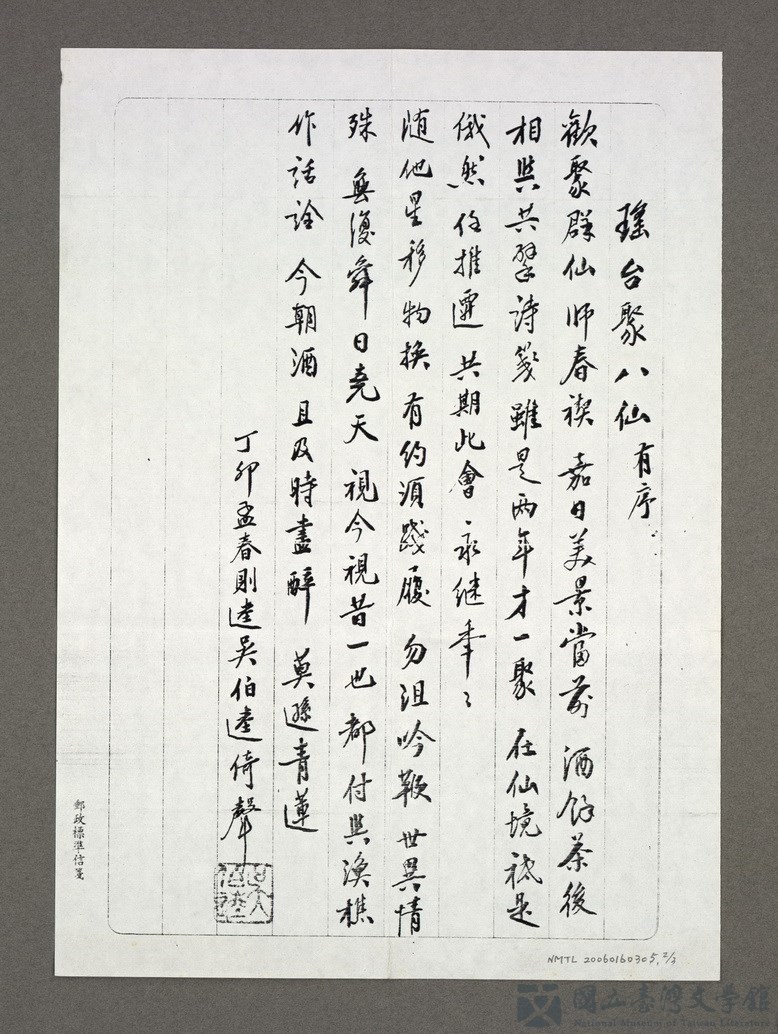 瑤台聚八仙 有序
歡聚群仙 師春禊 嘉日美景當前 酒餘茶後
相與共擘詩箋 雖是兩年才一聚 在仙境祗是
俄然 任推遷 共期此會 永繼年〻
随他星移物換 有約須踐履 勿沮吟鞭 世異情
殊 無復舜日堯天 視今視昔一也 都付與漁樵
作話詮 今朝酒 且及時盡醉 莫遜青蓮
丁卯孟春則迬吳伯迬倚聲
郵政標準信箋
NMTL 20060160305, 2/2
國立臺灣文學館
National Museum of Taiwan Literature